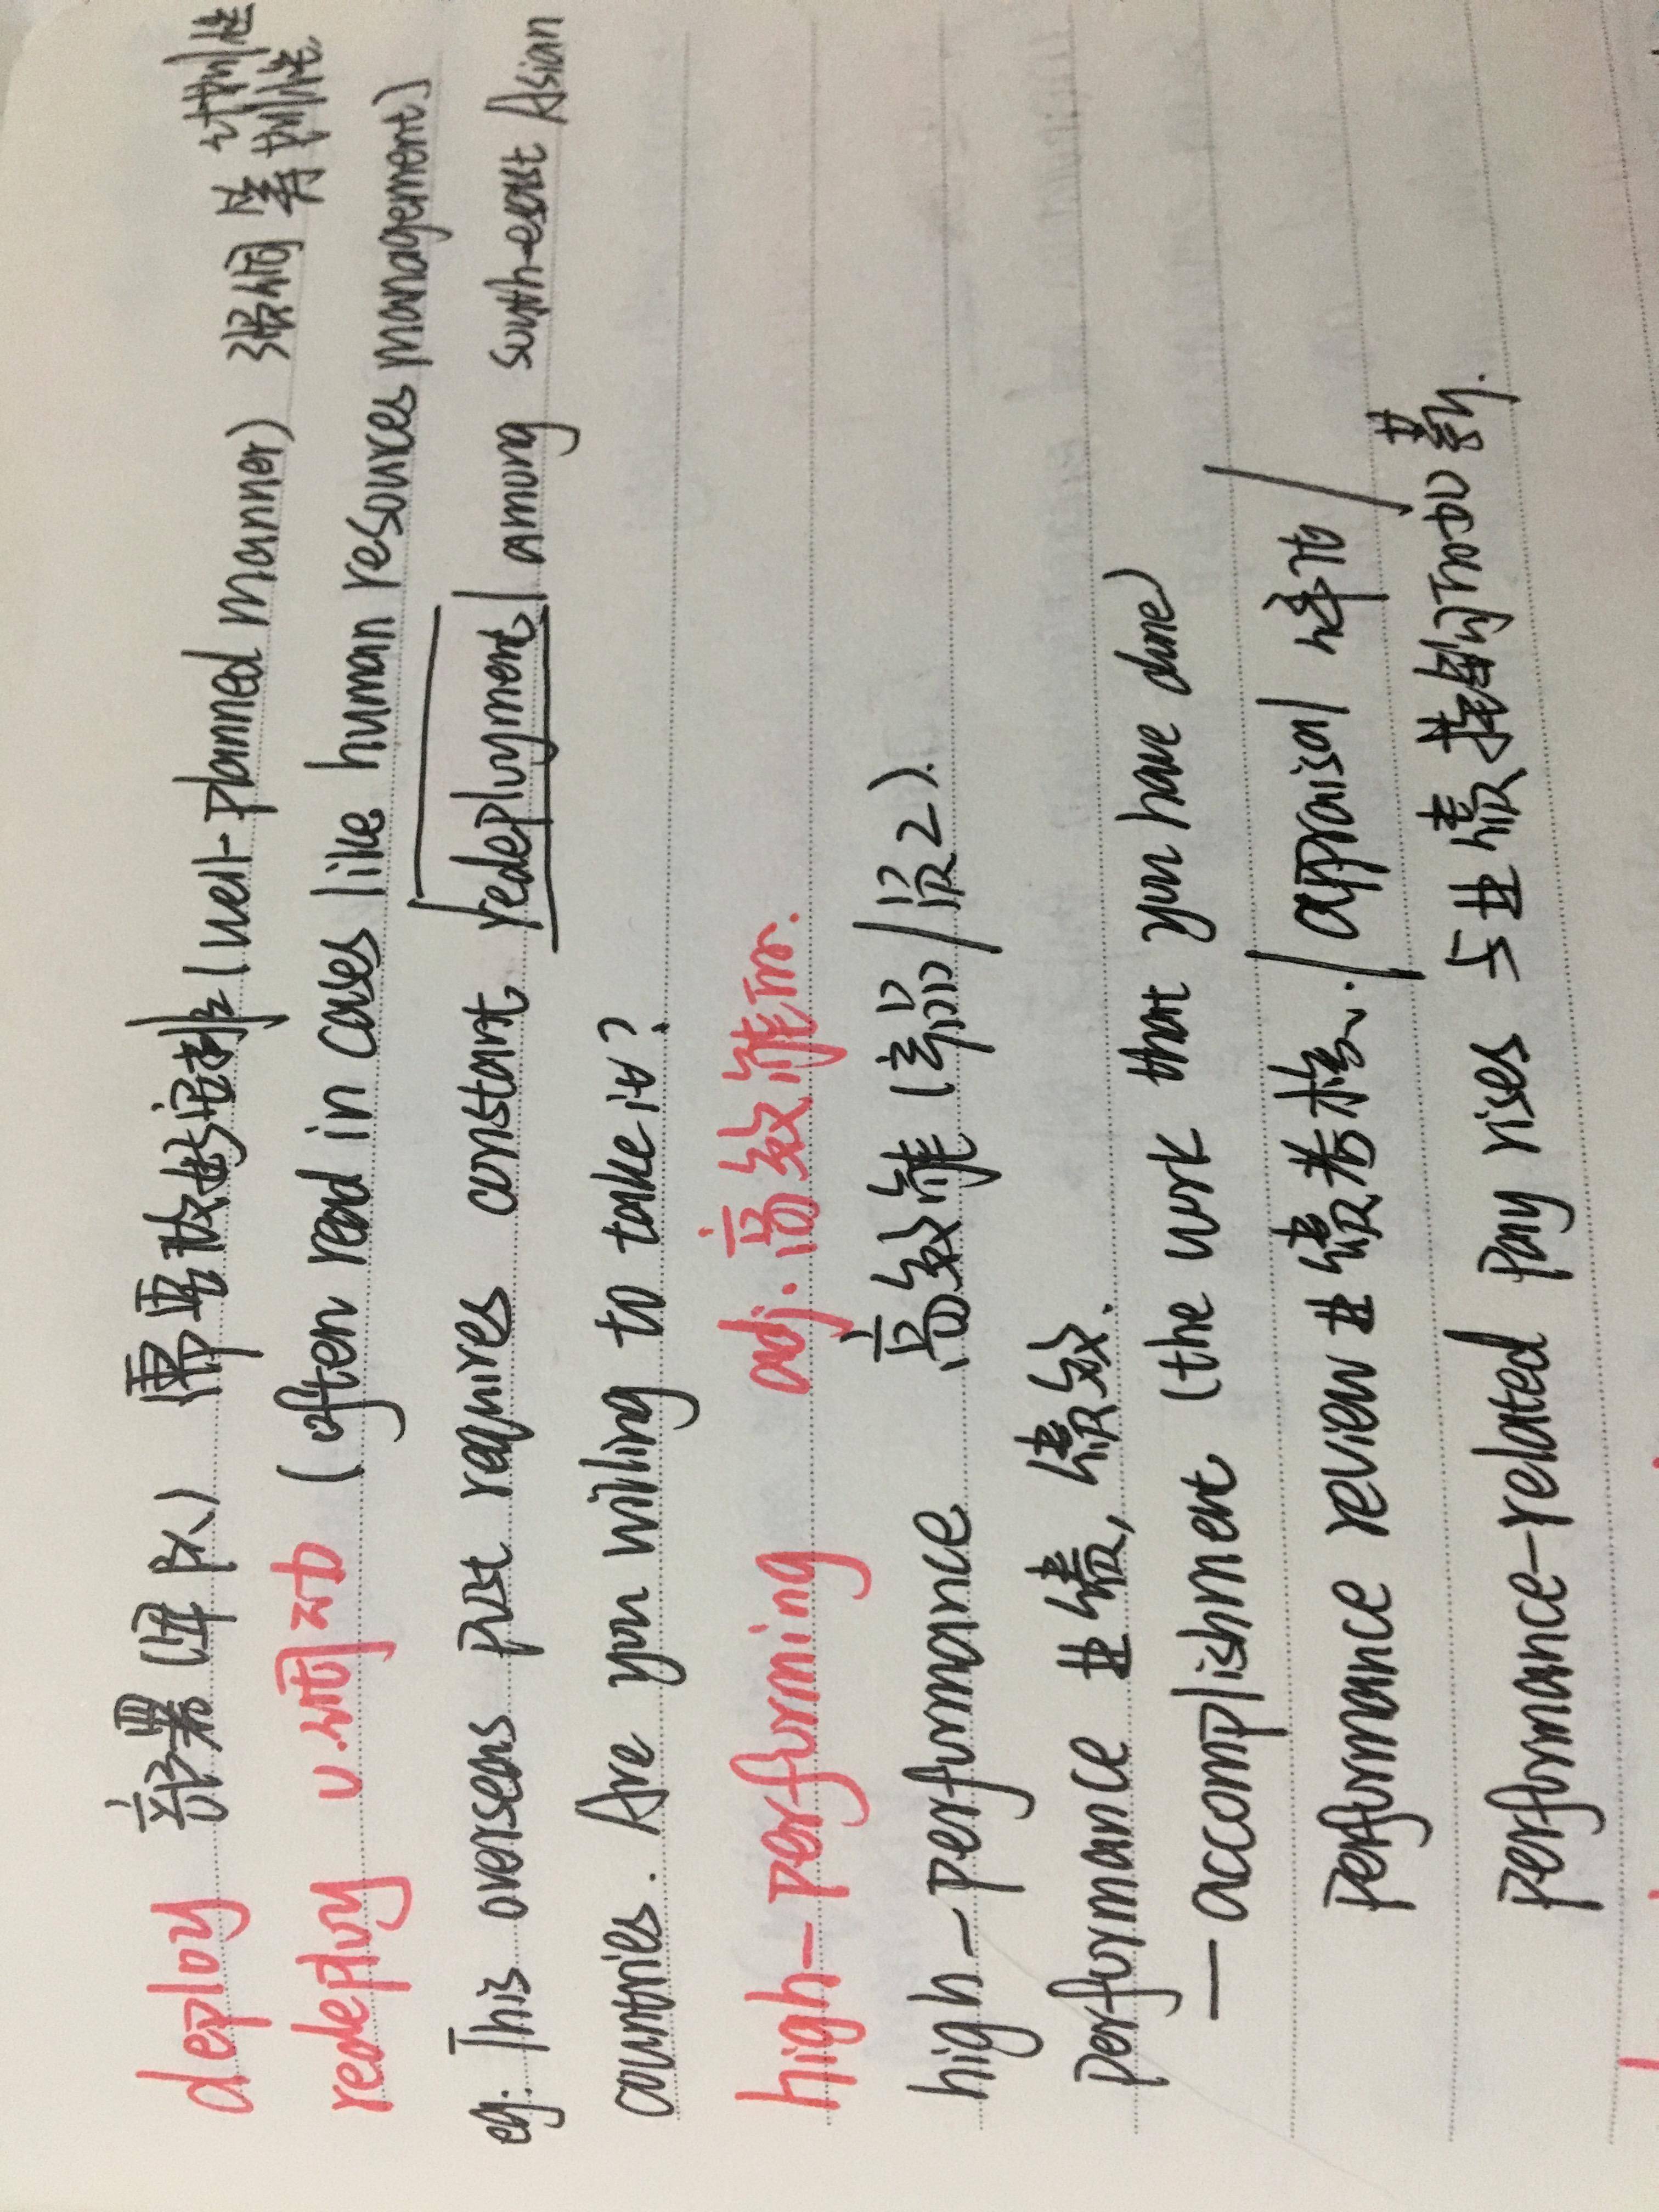 计划性
deploy 部署(军队) 需要故好安排(well-planned manner) 强调 筹划性
redeploy v.调动 (often read in cases like human resources management)
eg: This overseas post requires constant redeployment among south-east Asian
countries. Are you willing to take it?
high-performing adj. 高效能的.
high-performance 高效能(产品/员工).
performance 业绩, 绩效.
— accomplishment (the work that you have done)
performance review 业绩考核./appraisal 评估/
performance-related pay rises 与业绩挂钩的加薪.